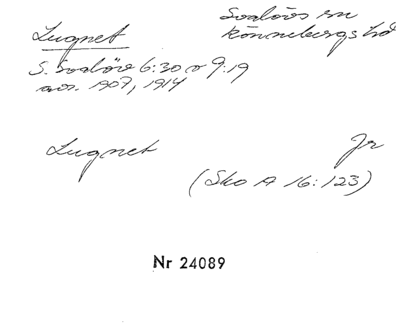 Lugnet
Svalövs sn
Rönnebergs hd
S. Svalöv 6:30 o 9:19
avs. 1907, 1914
Lugnet
Jr
(Sko A 16:123)
Nr 24089